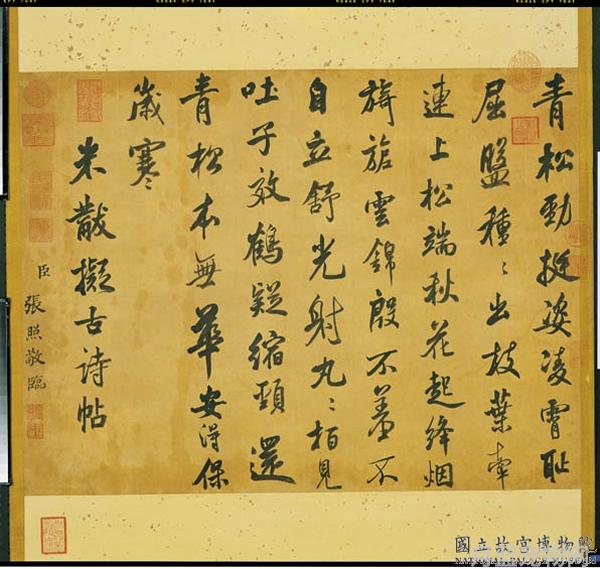 青松勁挺姿凌霄耻
屈盤種〻出枝葉牽
連上松端秋花起絳烟
旖旎雲錦殷不羞不
自立舒光射丸〻栢見
吐子效鶴疑縮頸還
青松本無華安得保
歲寒
米黻擬古詩帖
臣張照敬臨
國立故宮博物院